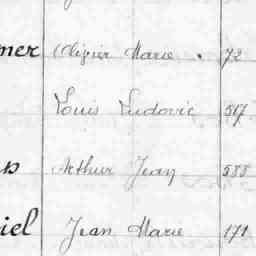 mer Olivier Marie . 72
Louis Ludovic 517
Arthur Jean 588
iel Jean Marie 171